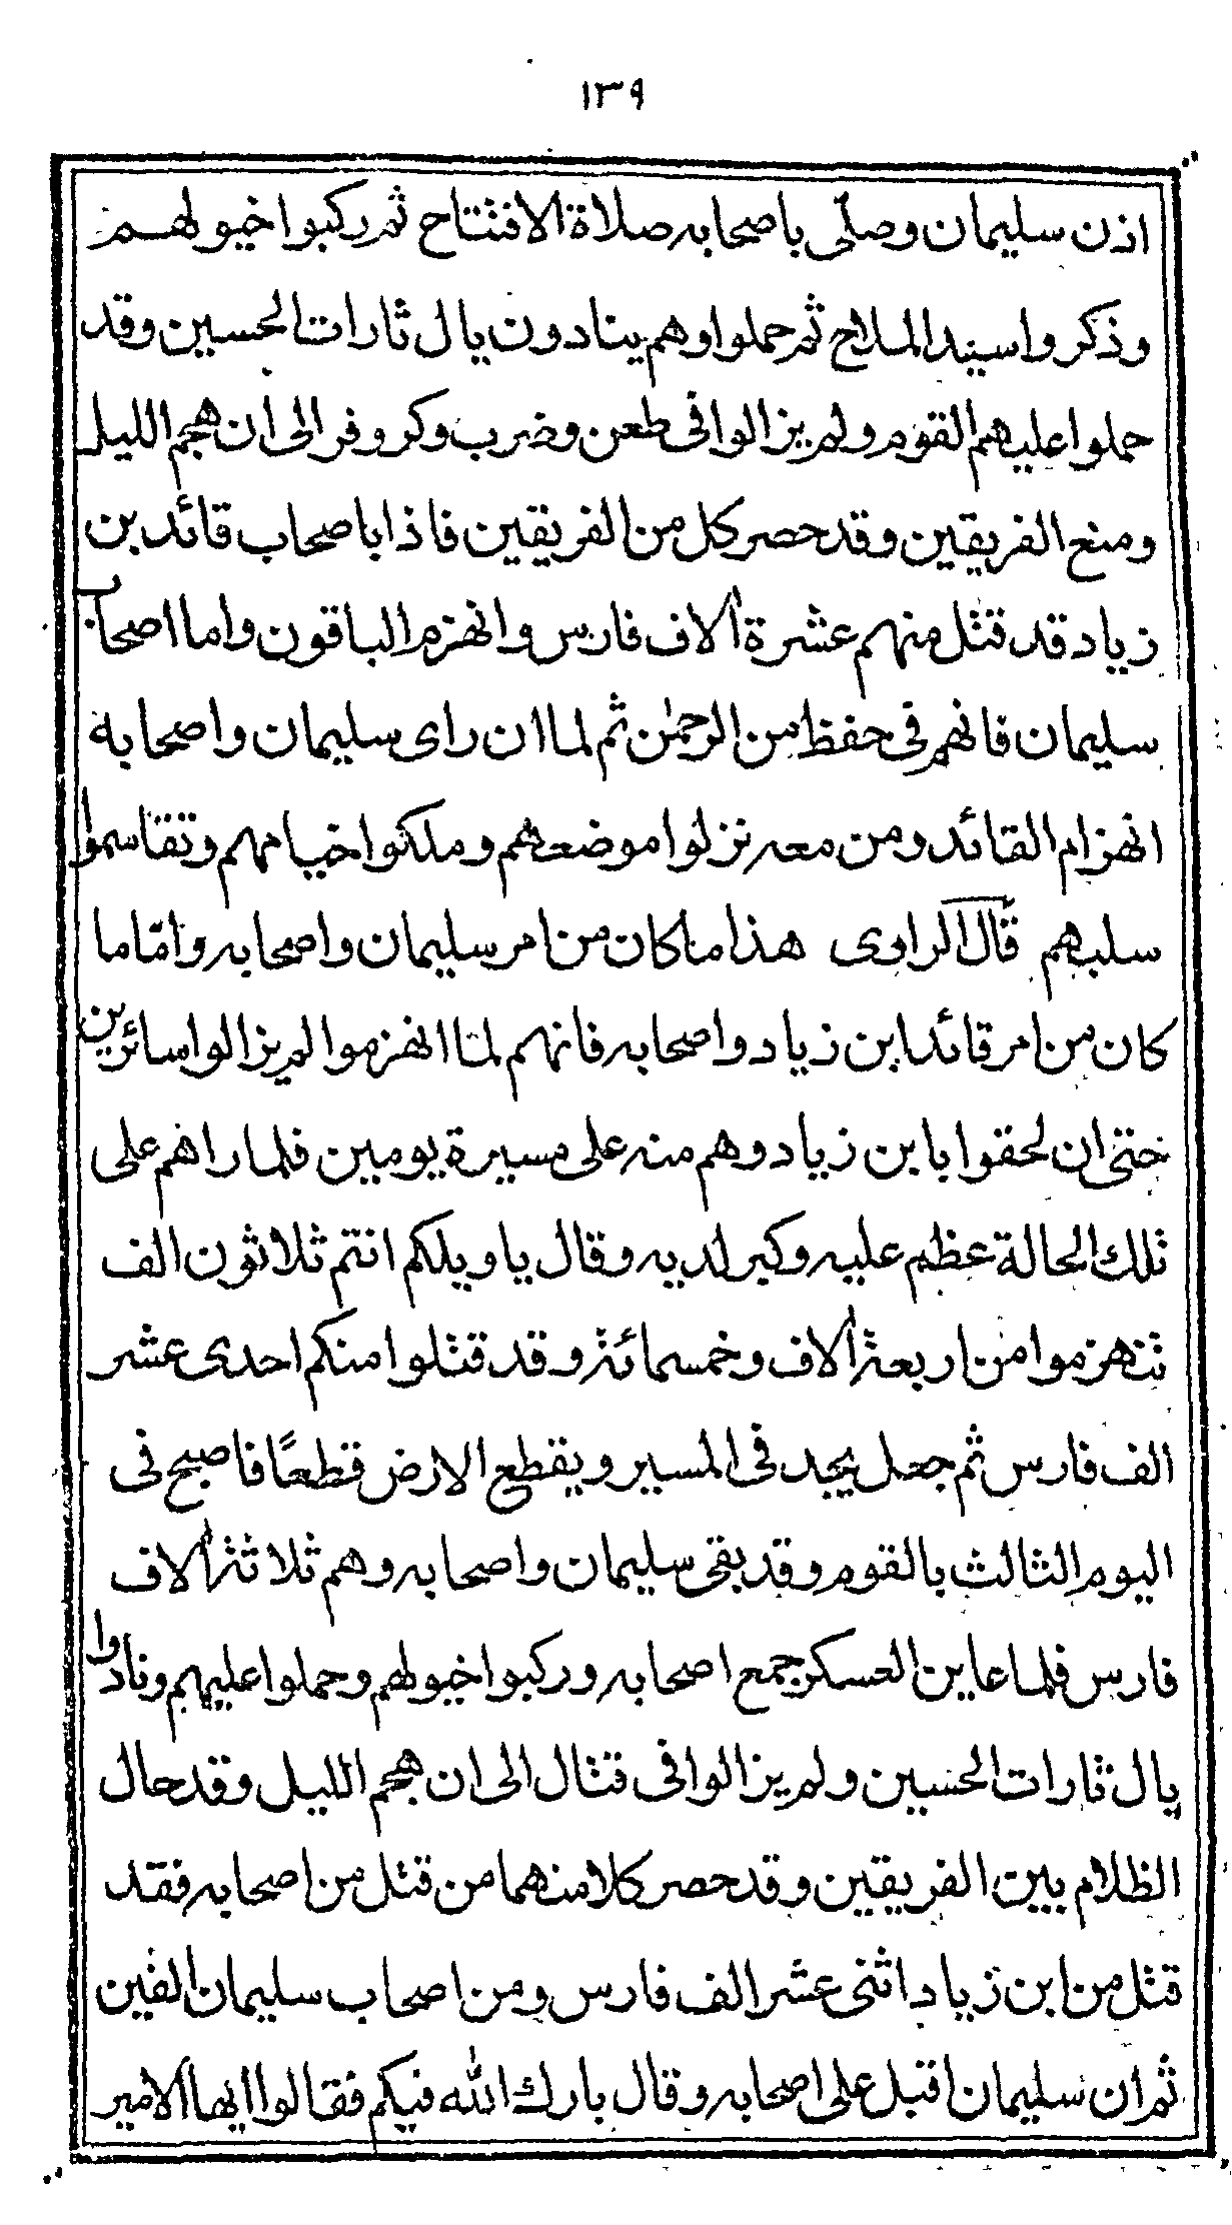 ١٣٩
اذن سليمان وصلّى باصحابه صلاة الافتتاح ثم ركبوا خيولهم
وذكروا سيد الملاح ثم حملوا وهم ينادون يال ثارات الحسين وقد
حملوا عليهم القوم ولم يزالوا فى طعن وضرب وكر وفر الى ان هجم الليل
ومنع الفريقين وقد حصر كل من الفريقين فاذا باصحاب قائد بن
زياد قد قتل منهم عشرة ألاف فارس وانهزم الباقون واما اصحاب
سليمان فانهم فى حفظ من الرحمٰن ثم لما ان راى سليمان واصحابه
انهزام القائد ومن معه نزلوا موضعهم وملكوا خيامهم وتقاسموا
سلبهم قال الراوى هذا ما كان من امر سليمان واصحابه وامّا ما
كان من امر قائد ابن زياد واصحابه فانهم لما انهزموا لم يزالوا سائرين
حتى ان لحقوا بابن زياد وهم منه على مسيرة يومين فلما راهم على
تلك الحالة عظم عليه وكبر لديه وقال يا ويلكم انتم ثلاثون الف
تنهزموا من اربعة ألاف وخمسمائة وقد قتلوا منكم احدى عشر
الف فارس ثم جعل يجد فى المسير ويقطع الارض قطعًا فاصبح فى
اليوم الثالث بالقوم وقد بقى سليمان واصحابه وهم ثلاثة ألاف
فارس فلما عاين العسكر جمع اصحابه وركبوا خيولهم وحملوا عليهم ونادوا
يال ثارات الحسين ولم يزالوا فى قتال الى ان هجم الليل وقد حال
الظلام بين الفريقين وقد حصر كلا منهما من قتل من اصحابه فقد
قتل من ابن زياد اثنى عشر الف فارس ومن اصحاب سليمان الفين
ثم ان سليمان اقبل على اصحابه وقال بارك الله فيكم فقالوا ايها الامير